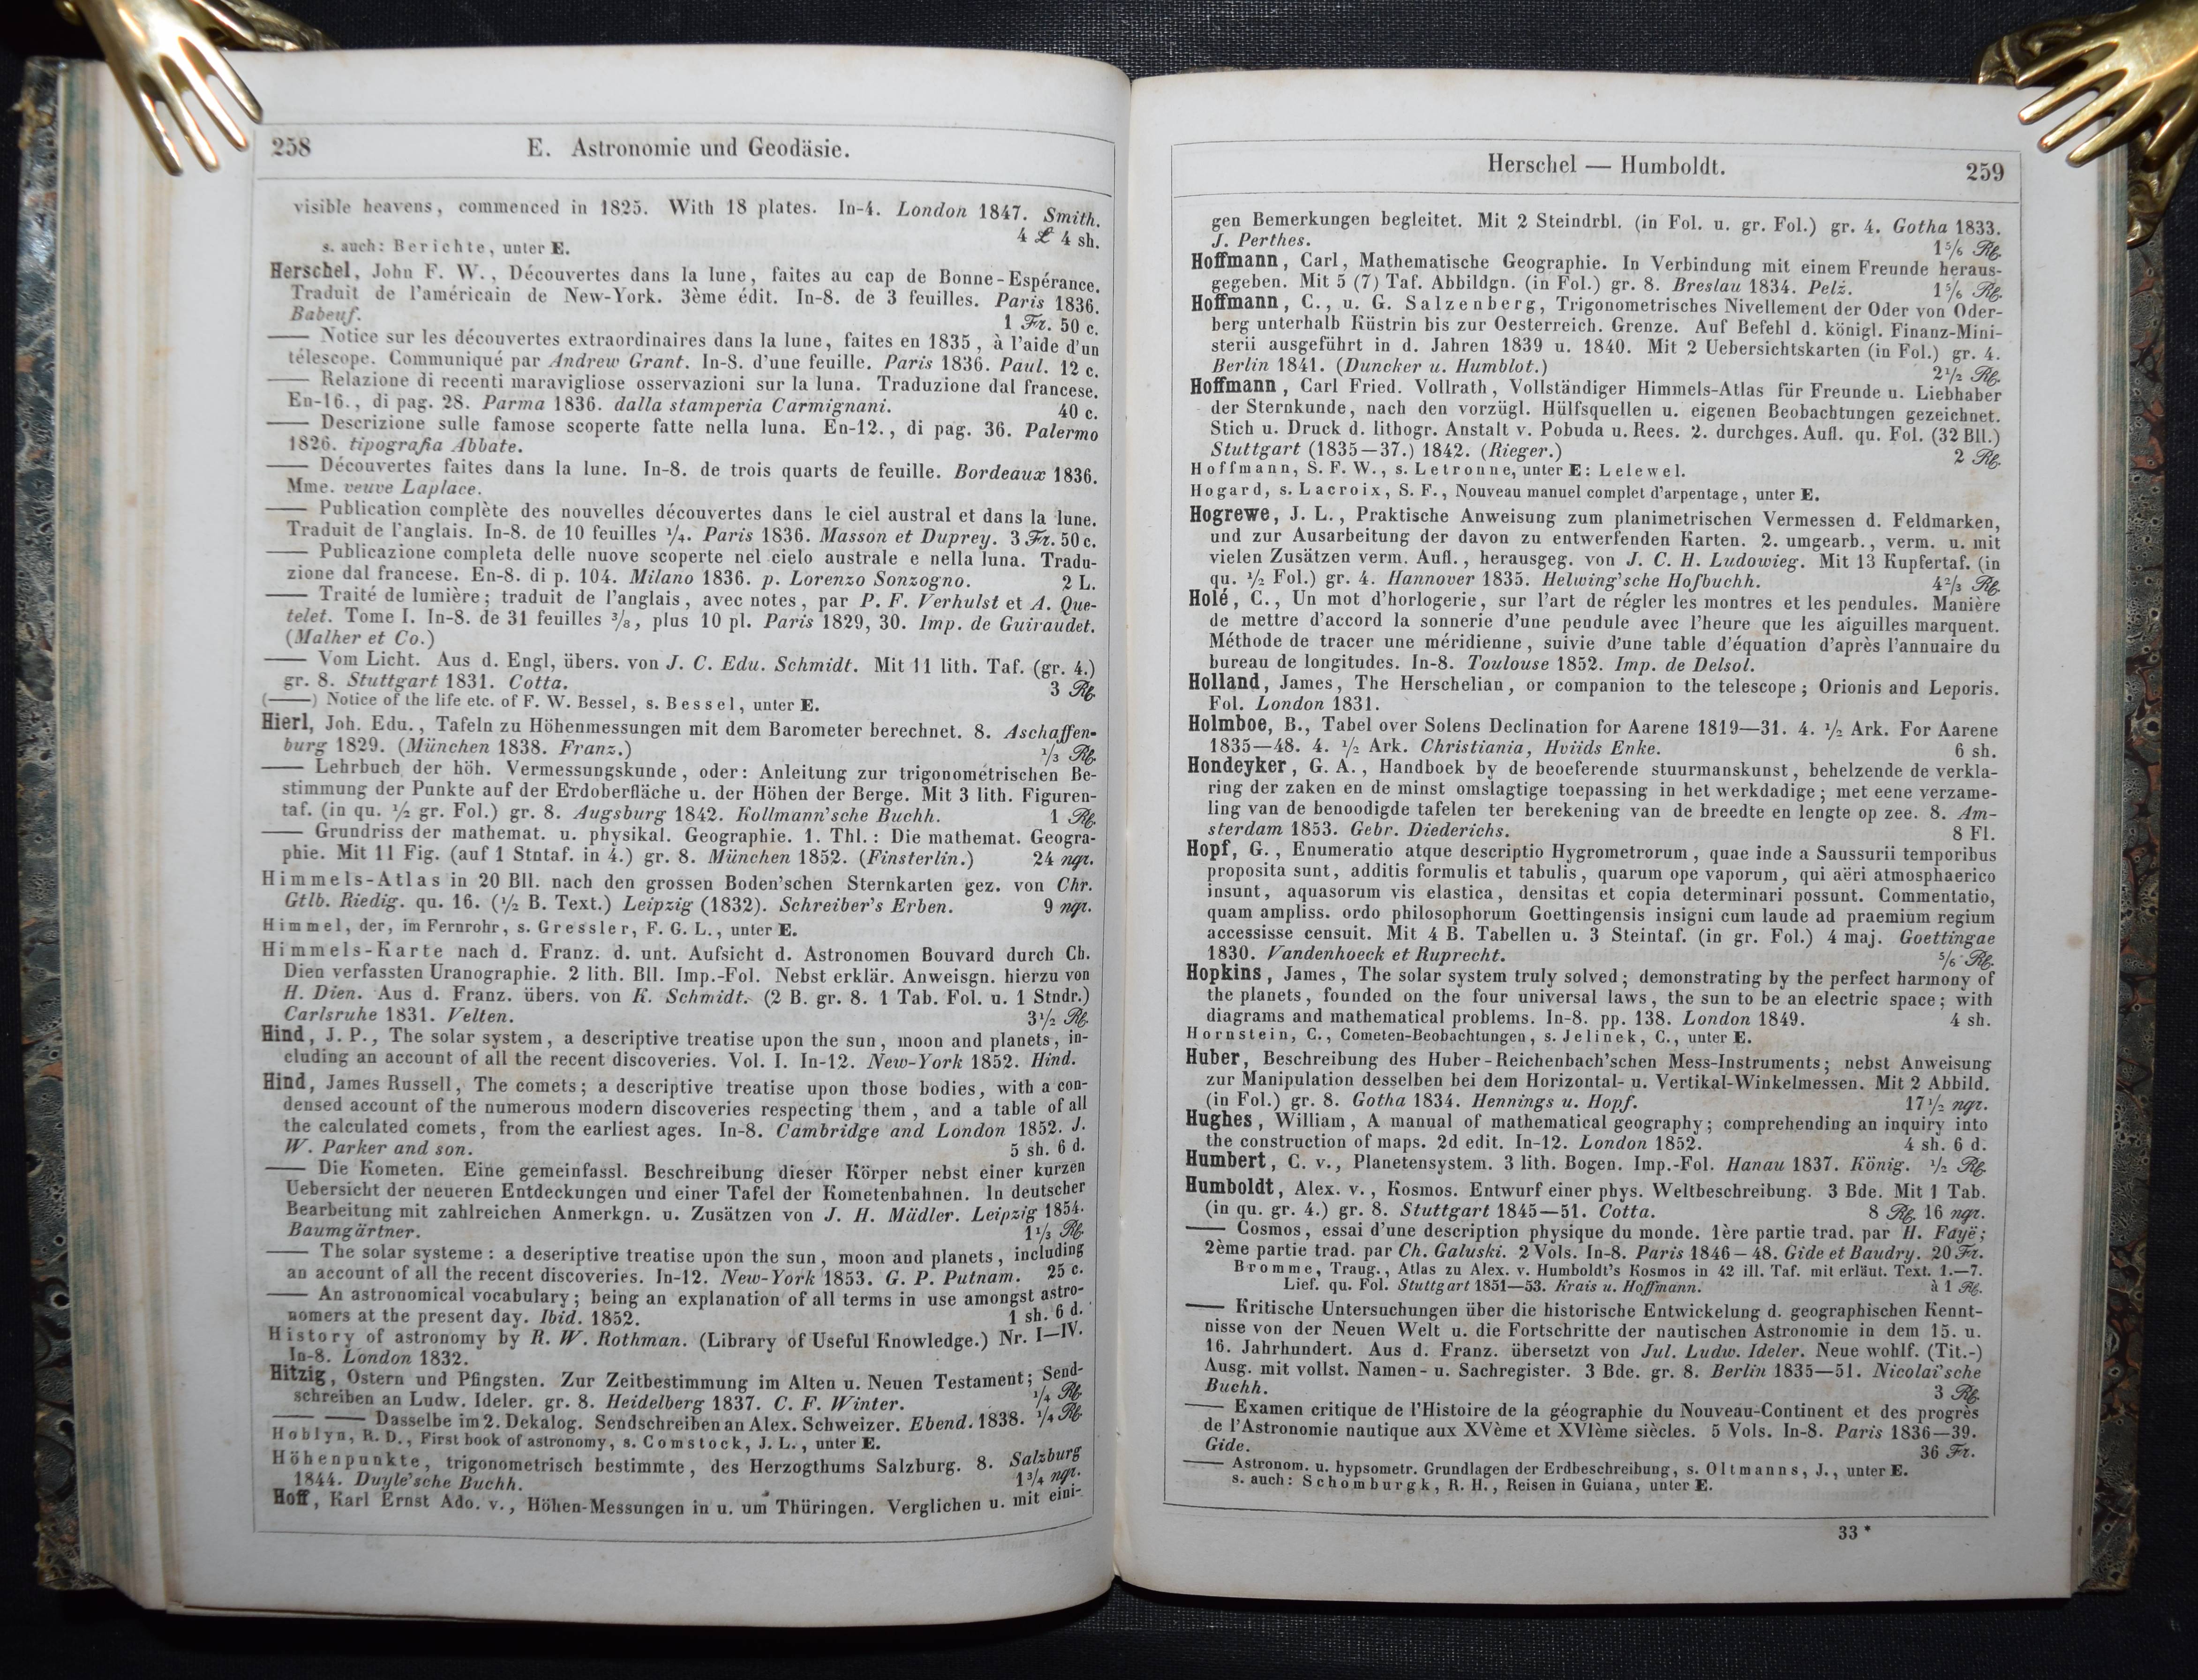 258
E. Astronomie und Geodäsie.
visible heavens, commenced in 1825. With 18 plates. In-4. London 1847. Smith.
4 ₤ 4 sh.
s. auch: Berichte, unter E.
Herschel, John F. W., Découvertes dans la lune, faites au cap de Bonne-Espérance.
Traduit de l'américain de New-York. 3ème édit. In-8. de 3 feuilles. Paris 1836.
Babeuf. 1 Fr. 50 c.
—— Notice sur les découvertes extraordinaires dans la lune, faites en 1835, à l'aide d'un
télescope. Communiqué par Andrew Grant. In-8. d'une feuille. Paris 1836. Paul. 12 c.
—— Relazione di recenti maravigliose osservazioni sur la luna. Traduzione dal francese.
En-16., di pag. 28. Parma 1836. dalla stamperia Carmignani. 40 c.
—— Descrizione sulle famose scoperte fatte nella luna. En-12., di pag. 36. Palermo
1826. tipografia Abbate.
—— Découvertes faites dans la lune. In-8. de trois quarts de feuille. Bordeaux 1836.
Mme. veuve Laplace.
—— Publication complète des nouvelles découvertes dans le ciel austral et dans la lune.
Traduit de l'anglais. In-8. de 10 feuilles 1/4. Paris 1836. Masson et Duprey. 3 Fr. 50 c.
—— Publicazione completa delle nuove scoperte nel cielo australe e nella luna. Tradu-
zione dal francese. En-8. di p. 104. Milano 1836. p. Lorenzo Sonzogno. 2 L.
—— Traité de lumière; traduit de l'anglais, avec notes, par P. F. Verhulst et A. Que-
telet. Tome I. In-8. de 31 feuilles 3/8, plus 10 pl. Paris 1829, 30. Imp. de Guiraudet.
(Malher et Co.)
—— Vom Licht. Aus d. Engl, übers. von J. C. Edu. Schmidt. Mit 11 lith. Taf. (gr. 4.)
gr. 8. Stuttgart 1831. Cotta. 3 Rb.
(——) Notice of the life etc. of F. W. Bessel, s. Bessel, unter E.
Hierl, Joh. Edu., Tafeln zu Höhenmessungen mit dem Barometer berechnet. 8. Aschaffen-
burg 1829. (München 1838. Franz.) 1/3 Rb.
—— Lehrbuch der höh. Vermessungskunde, oder: Anleitung zur trigonometrischen Be-
stimmung der Punkte auf der Erdoberfläche u. der Höhen der Berge. Mit 3 lith. Figuren-
taf. (in qu. 1/2 gr. Fol.) gr. 8. Augsburg 1842. Kollmann'sche Buchh. 1 Rb.
—— Grundriss der mathemat. u. physikal. Geographie. 1. Thl.: Die mathemat. Geogra-
phie. Mit 11 Fig. (auf 1 Stntaf. in 4.) gr. 8. München 1852. (Finsterlin.) 24 ngr.
Himmels-Atlas in 20 Bll. nach den grossen Boden'schen Sternkarten gez. von Chr.
Gtlb. Riedig. qu. 16. (1/2 B. Text.) Leipzig (1832). Schreiber's Erben. 9 ngr.
Himmel, der, im Fernrohr, s. Gressler, F. G. L., unter E.
Himmels-Karte nach d. Franz. d. unt. Aufsicht d. Astronomen Bouvard durch Ch.
Dien verfassten Uranographie. 2 lith. Bll. Imp.-Fol. Nebst erklär. Anweisgn. hierzu von
H. Dien. Aus d. Franz. übers. von K. Schmidt. (2 B. gr. 8. 1 Tab. Fol. u. 1 Stndr.)
Carlsruhe 1831. Velten. 3 1/2 Rb.
Hind, J. P., The solar system, a descriptive treatise upon the sun, moon and planets, in-
cluding an account of all the recent discoveries. Vol. I. In-12. New-York 1852. Hind.
Hind, James Russell, The comets; a descriptive treatise upon those bodies, with a con-
densed account of the numerous modern discoveries respecting them, and a table of all
the calculated comets, from the earliest ages. In-8. Cambridge and London 1852. J.
W. Parker and son. 5 sh. 6 d.
—— Die Kometen. Eine gemeinfassl. Beschreibung dieser Körper nebst einer kurzen
Uebersicht der neueren Entdeckungen und einer Tafel der Kometenbahnen. In deutscher
Bearbeitung mit zahlreichen Anmerkgn. u. Zusätzen von J. H. Mädler. Leipzig 1854.
Baumgärtner. 1 1/3 Rb.
—— The solar systeme: a deseriptive treatise upon the sun, moon and planets, including
an account of all the recent discoveries. In-12. New-York 1853. G. P. Putnam. 25 c.
—— An astronomical vocabulary; being an explanation of all terms in use amongst astro-
nomers at the present day. Ibid. 1852. 1 sh. 6 d.
History of astronomy by R. W. Rothman. (Library of Useful Knowledge.) Nr. I—IV.
In-8. London 1832.
Hitzig, Ostern und Pfingsten. Zur Zeitbestimmung im Alten u. Neuen Testament; Send-
schreiben an Ludw. Ideler. gr. 8. Heidelberg 1837. C. F. Winter. 1/4 Rb.
—— —— Dasselbe im 2. Dekalog. Sendschreiben an Alex. Schweizer. Ebend. 1838. 1/4 Rb.
Hoblyn, R. D., First book of astronomy, s. Comstock, J. L., unter E.
Höhenpunkte, trigonometrisch bestimmte, des Herzogthums Salzburg. 8. Salzburg
1844. Duyle'sche Buchh. 1 3/4 ngr.
Hoff, Karl Ernst Ado. v., Höhen-Messungen in u. um Thüringen. Verglichen u. mit eini-
Herschel — Humboldt.
259
gen Bemerkungen begleitet. Mit 2 Steindrbl. (in Fol. u. gr. Fol.) gr. 4. Gotha 1833.
J. Perthes. 1 5/6 Rb.
Hoffmann, Carl, Mathematische Geographie. In Verbindung mit einem Freunde heraus-
gegeben. Mit 5 (7) Taf. Abbildgn. (in Fol.) gr. 8. Breslau 1834. Pelz. 1 5/6 Rb.
Hoffmann, C., u. G. Salzenberg, Trigonometrisches Nivellement der Oder von Oder-
berg unterhalb Küstrin bis zur Oesterreich. Grenze. Auf Befehl d. königl. Finanz-Mini-
sterii ausgeführt in d. Jahren 1839 u. 1840. Mit 2 Uebersichtskarten (in Fol.) gr. 4.
Berlin 1841. (Duncker u. Humblot.) 2 1/2 Rb.
Hoffmann, Carl Fried. Vollrath, Vollständiger Himmels-Atlas für Freunde u. Liebhaber
der Sternkunde, nach den vorzügl. Hülfsquellen u. eigenen Beobachtungen gezeichnet.
Stich u. Druck d. lithogr. Anstalt v. Pobuda u. Rees. 2. durchges. Aufl. qu. Fol. (32 Bll.)
Stuttgart (1835—37.) 1842. (Rieger.) 2 Rb.
Hoffmann, S. F. W., s. Letronne, unter E: Lelewel.
Hogard, s. Lacroix, S. F., Nouveau manuel complet d'arpentage, unter E.
Hogrewe, J. L., Praktische Anweisung zum planimetrischen Vermessen d. Feldmarken,
und zur Ausarbeitung der davon zu entwerfenden Karten. 2. umgearb., verm. u. mit
vielen Zusätzen verm. Aufl., herausgeg. von J. C. H. Ludowieg. Mit 13 Kupfertaf. (in
qu. 1/2 Fol.) gr. 4. Hannover 1835. Helwing'sche Hofbuchh. 4 2/3 Rb.
Holé, C., Un mot d'horlogerie, sur l'art de régler les montres et les pendules. Manière
de mettre d'accord la sonnerie d'une pendule avec l'heure que les aiguilles marquent.
Méthode de tracer une méridienne, suivie d'une table d'équation d'après l'annuaire du
bureau de longitudes. In-8. Toulouse 1852. Imp. de Delsol.
Holland, James, The Herschelian, or companion to the telescope; Orionis and Leporis.
Fol. London 1831.
Holmboe, B., Tabel over Solens Declination for Aarene 1819—31. 4. 1/2 Ark. For Aarene
1835—48. 4. 1/2 Ark. Christiania, Hviids Enke. 6 sh.
Hondeyker, G. A., Handboek by de beoeferende stuurmanskunst, behelzende de verkla-
ring der zaken en de minst omslagtige toepassing in het werkdadige; met eene verzame-
ling van de benoodigde tafelen ter berekening van de breedte en lengte op zee. 8. Am-
sterdam 1853. Gebr. Diederichs. 8 Fl.
Hopf, G., Enumeratio atque descriptio Hygrometrorum, quae inde a Saussurii temporibus
proposita sunt, additis formulis et tabulis, quarum ope vaporum, qui aëri atmosphaerico
insunt, aquasorum vis elastica, densitas et copia determinari possunt. Commentatio,
quam ampliss. ordo philosophorum Goettingensis insigni cum laude ad praemium regium
accessisse censuit. Mit 4 B. Tabellen u. 3 Steintaf. (in gr. Fol.) 4 maj. Goettingae
1830. Vandenhoeck et Ruprecht. 5/6 Rb.
Hopkins, James, The solar system truly solved; demonstrating by the perfect harmony of
the planets, founded on the four universal laws, the sun to be an electric space; with
diagrams and mathematical problems. In-8. pp. 138. London 1849. 4 sh.
Hornstein, C., Cometen-Beobachtungen, s. Jelinek, C., unter E.
Huber, Beschreibung des Huber-Reichenbach'schen Mess-Instruments; nebst Anweisung
zur Manipulation desselben bei dem Horizontal- u. Vertikal-Winkelmessen. Mit 2 Abbild.
(in Fol.) gr. 8. Gotha 1834. Hennings u. Hopf. 17 1/2 ngr.
Hughes, William, A manual of mathematical geography; comprehending an inquiry into
the construction of maps. 2d edit. In-12. London 1852. 4 sh. 6 d.
Humbert, C. v., Planetensystem. 3 lith. Bogen. Imp.-Fol. Hanau 1837. König. 1/2 Rb.
Humboldt, Alex. v., Kosmos. Entwurf einer phys. Weltbeschreibung. 3 Bde. Mit 1 Tab.
(in qu. gr. 4.) gr. 8. Stuttgart 1845—51. Cotta. 8 Rb. 16 ngr.
—— Cosmos, essai d'une description physique du monde. 1ère partie trad. par H. Fayë;
2ème partie trad. par Ch. Galuski. 2 Vols. In-8. Paris 1846–48. Gide et Baudry. 20 Fr.
Bromme, Traug., Atlas zu Alex. v. Humboldt's Kosmos in 42 ill. Taf. mit erläut. Text. 1.—7.
Lief. qu. Fol. Stuttgart 1851—53. Krais u. Hoffmann. à 1 Rb.
—— Kritische Untersuchungen über die historische Entwickelung d. geographischen Kennt-
nisse von der Neuen Welt u. die Fortschritte der nautischen Astronomie in dem 15. u.
16. Jahrhundert. Aus d. Franz. übersetzt von Jul. Ludw. Ideler. Neue wohlf. (Tit.-)
Ausg. mit vollst. Namen- u. Sachregister. 3 Bde. gr. 8. Berlin 1835—51. Nicolai'sche
Buchh. 3 Rb.
—— Examen critique de l'Histoire de la géographie du Nouveau-Continent et des progrès
de l'Astronomie nautique aux XVème et XVIème siècles. 5 Vols. In-8. Paris 1836—39.
Gide. 36 Fr.
—— Astronom. u. hypsometr. Grundlagen der Erdbeschreibung, s. Oltmanns, J., unter E.
s. auch: Schomburgk, R. H., Reisen in Guiana, unter E.
33 *